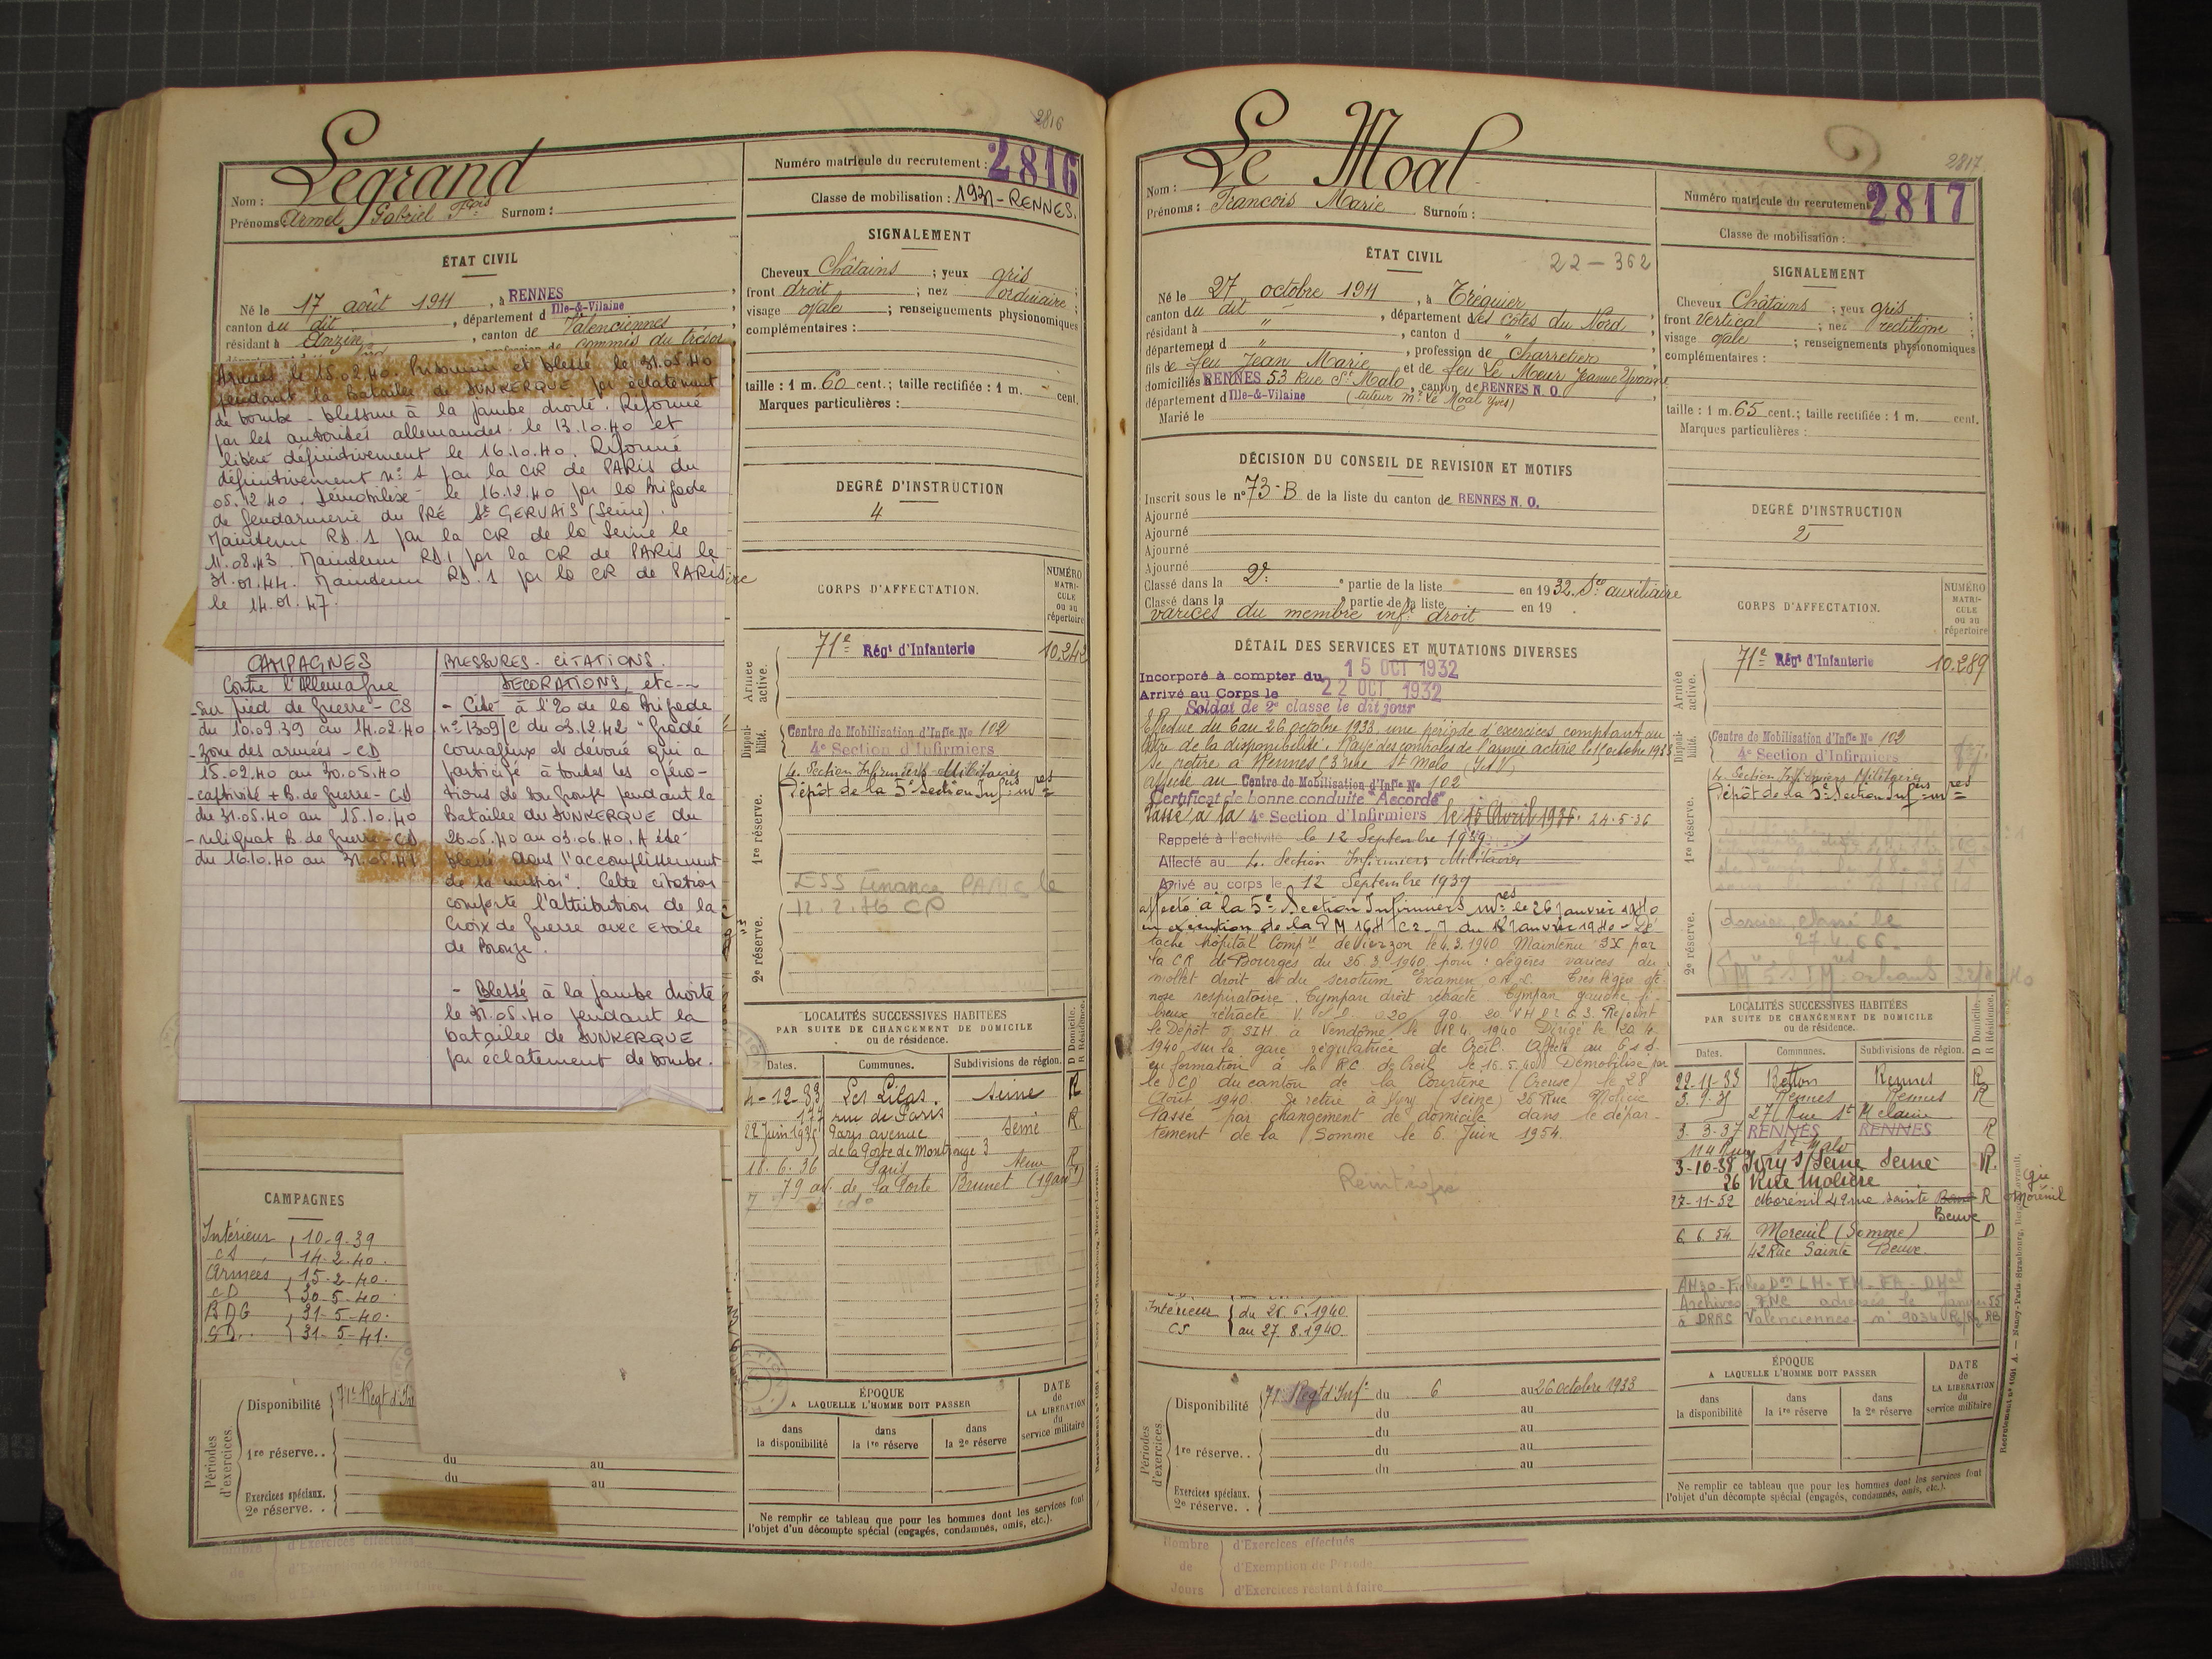 2816
Legrand
Nom :
Prénoms : Armel Gabriel Fçois Surnom :
Numéro matricule du recrutement : 2816
Classe de mobilisation : 1931 - RENNES.
ÉTAT CIVIL
Né le 17 août 1911, à RENNES
canton du dit, département d Ille-&-Vilaine
résidant à Anzin, canton de Valenciennes
profession de commis du trésor
Armées le 15.02.40. Prisonnier et blessé le 31.05.40
pendant la bataille de DUNKERQUE par éclatement
de bombe - blessure à la jambe droite. Réformé
par les autorités allemandes le 13.10.40 et
libéré définitivement le 16.10.40. Réformé
définitivement n° 1 par la CR de PARIS du
05.12.40. Démobilisé le 16.12.40 par la brigade
de gendarmerie du PRÉ St GERVAIS (Seine).
Maintenu RD.1 par la CR de la Seine le
11.08.43. Maintenu RD1 par la CR de PARIS le
31.01.44. Maintenu RD.1 par la CR de PARIS
le 14.01.47.
CAMPAGNES
Contre l'Allemagne
- Sur pied de guerre - CS
du 10.09.39 au 14.02.40
- Zone des armées - CD
15.02.40 au 30.05.40
- captivité + B. de guerre - CD
du 31.05.40 au 15.10.40
- reliquat B. de guerre - CD
du 16.10.40 au 31.05.41
BLESSURES - CITATIONS.
DECORATIONS, etc--
- Cité à l'O de la brigade
n° 1309/C du 03.12.42 "gradé
courageux et dévoué qui a
participé à toutes les opéra-
tions de son groupe pendant la
bataille du DUNKERQUE du
26.05.40 au 03.06.40. A été
blessé dans l'accomplissement
de sa mission". Cette citation
comporte l'attribution de la
Croix de guerre avec Etoile
de Bronze.
- Blessé à la jambe droite
le 31.05.40 pendant la
bataille de DUNKERQUE
par éclatement de bombe.
CAMPAGNES
Intérieur 10-9-39
CS 14-2-40.
Armées 15-2-40.
CD 30-5-40.
BDG 31-5-40.
SD. 31-5-41.
Périodes d'exercices.
Disponibilité 71e Regt d'Inf
1re réserve. . du au
du au
Exercices spéciaux.
2e réserve. .
Nombre de Jours
d'Exercices effectués
d'Exemption de Période
SIGNALEMENT
Cheveux Châtains ; yeux gris
front droit ; nez ordinaire ;
visage ovale ; renseignements physionomiques
complémentaires :
taille : 1 m. 60 cent.; taille rectifiée : 1 m. cent.
Marques particulières :
DEGRÉ D'INSTRUCTION
4
CORPS D'AFFECTATION.
NUMÉRO MATRICULE ou au répertoire
Armée active.
71e Régt d'Infanterie 10.242
Disponibilité.
Centre de Mobilisation d'Infie No 102
4e Section d'Infirmiers
1re réserve.
4. Section Infirmiers Militaires
Dépôt de la 5e Section Infers mres
2e réserve.
ESS Finance PARIS le
12.2.46 CP
LOCALITÉS SUCCESSIVES HABITÉES
PAR SUITE DE CHANGEMENT DE DOMICILE
ou de résidence.
D Domicile. R Résidence.
Dates. Communes. Subdivisions de région.
4-12-33 Les Lilas. Seine R
174 rue de Paris
22 Juin 1935 Paris avenue Seine R
de la Porte de Montrouge 3
18.6.36 Paris Seine R
79 av. de la Porte Brunet (19 arrt)
ÉPOQUE
A LAQUELLE L'HOMME DOIT PASSER
dans la disponibilité
dans la 1re réserve
dans la 2e réserve
DATE de LA LIBÉRATION du service militaire
Ne remplir ce tableau que pour les hommes dont les services font
l'objet d'un décompte spécial (engagés, condamnés, omis, etc.).
2817
Le Moal
Nom :
Prénoms : Francois Marie Surnom :
Numéro matricule du recrutement 2817
Classe de mobilisation :
ÉTAT CIVIL
22-362
Né le 27 octobre 1911, à Tréguier
canton du dit, département des Côtes du Nord
résidant à ", canton d "
département d ", profession de Charretier
fils de feu Jean Marie et de feu Le Meur Jeanne Yvonne
domiciliés à RENNES 53 Rue St Malo, canton de RENNES N. O.
département d Ille-&-Vilaine (tuteur Mr Le Moal Yves)
Marié le
DÉCISION DU CONSEIL DE REVISION ET MOTIFS
Inscrit sous le n° 73-B de la liste du canton de RENNES N. O.
Ajourné
Ajourné
Ajourné
Ajourné
Classé dans la 2e partie de la liste en 1932. Sce auxiliaire
Classé dans la e partie de la liste en 19
varices du membre inf. droit
DÉTAIL DES SERVICES ET MUTATIONS DIVERSES
Incorporé à compter du 15 OCT 1932
Arrivé au Corps le 22 OCT. 1932
Soldat de 2e classe le dit jour
Effectué du 6 au 26 octobre 1933, une période d'exercices comptant au
titre de la disponibilité. Rayé des contrôles de l'armée active le 15 octobre 1933
Se retire à Rennes 53 rue St Malo (I et V)
affecté au Centre de Mobilisation d'Infie No 102
Certificat de bonne conduite "Accordé"
Passé à la 4e Section d'Infirmiers le 15 Avril 1936. 24-5-36
Rappelé à l'activité le 12 Septembre 1939
Affecté au 4. Section Infirmiers Militaires
Arrivé au corps le 12 Septembre 1939
affecté à la 5e Section Infirmiers mres le 26 janvier 1940
en exécution de la DM 1641 C2-7 du 12 Janvier 1940 - Dé-
taché Hôpital Compre de Vierzon le 4.3.1940 Maintenu SX par
la CR de Bourges du 26.3.1940 pour : Légères varices du
mollet droit et du scrotum Examen O.R.L. Très légère sté-
nose respiratoire. Tympan droit rétracté. Tympan gauche fi-
breux rétracté Rejoint
le Dépôt 5. SIM. à Vendôme le 18.4.1940 Dirigé le 20.4.
1940 sur la gare régulatrice de Creil. Affecté au G s d
en formation à la R.C de Creil le 16.5.40. Démobilisé par
le CD du canton de la Courtine (Creuse) le 28
Août 1940. Se retire à Ivry (Seine) 26 Rue Molière
Passé par changement de domicile dans le dépar-
tement de la Somme le 6 Juin 1954.
Intérieur du 26.6.1940
CS au 27.8.1940
Périodes d'exercices.
Disponibilité 71 Regt d'Inf du 6 au 26 octobre 1933
du au
du au
1re réserve. . du au
du au
Exercices spéciaux.
2e réserve. .
Nombre de Jours
d'Exercices effectués
d'Exemption de Période
d'Exercices restant à faire
SIGNALEMENT
Cheveux Châtains ; yeux gris
front Vertical ; nez rectiligne ;
visage ovale ; renseignements physionomiques
complémentaires :
taille : 1 m. 65 cent.; taille rectifiée : 1 m. cent.
Marques particulières :
DEGRÉ D'INSTRUCTION
2
CORPS D'AFFECTATION.
NUMÉRO MATRICULE ou au répertoire
Armée active.
71e Régt d'Infanterie 10.289
Disponibilité.
Centre de Mobilisation d'Infie No 102
4e Section d'Infirmiers
1re réserve.
4. Section Infirmiers Militaires
Dépôt de la 5e Section Infers mres
2e réserve.
dossier classé le
27.4.66.
LOCALITÉS SUCCESSIVES HABITÉES
PAR SUITE DE CHANGEMENT DE DOMICILE
ou de résidence.
D Domicile. R Résidence.
Dates. Communes. Subdivisions de région.
22-11-33 Betton Rennes R
Rennes Rennes R
27 Rue St Melaine
3-3-37 RENNES RENNES R
114 Rue St Malo
3-10-38 Ivry s/Seine Seine R.
26 Rue Molière
27-11-52 Moreuil 42 rue Sainte Beuve R gie Moreuil
6.6.54 Moreuil (Somme) D
42 Rue Sainte Beuve
ÉPOQUE
A LAQUELLE L'HOMME DOIT PASSER
dans la disponibilité
dans la 1re réserve
dans la 2e réserve
DATE de LA LIBÉRATION du service militaire
Ne remplir ce tableau que pour les hommes dont les services font
l'objet d'un décompte spécial (engagés, condamnés, omis, etc.).